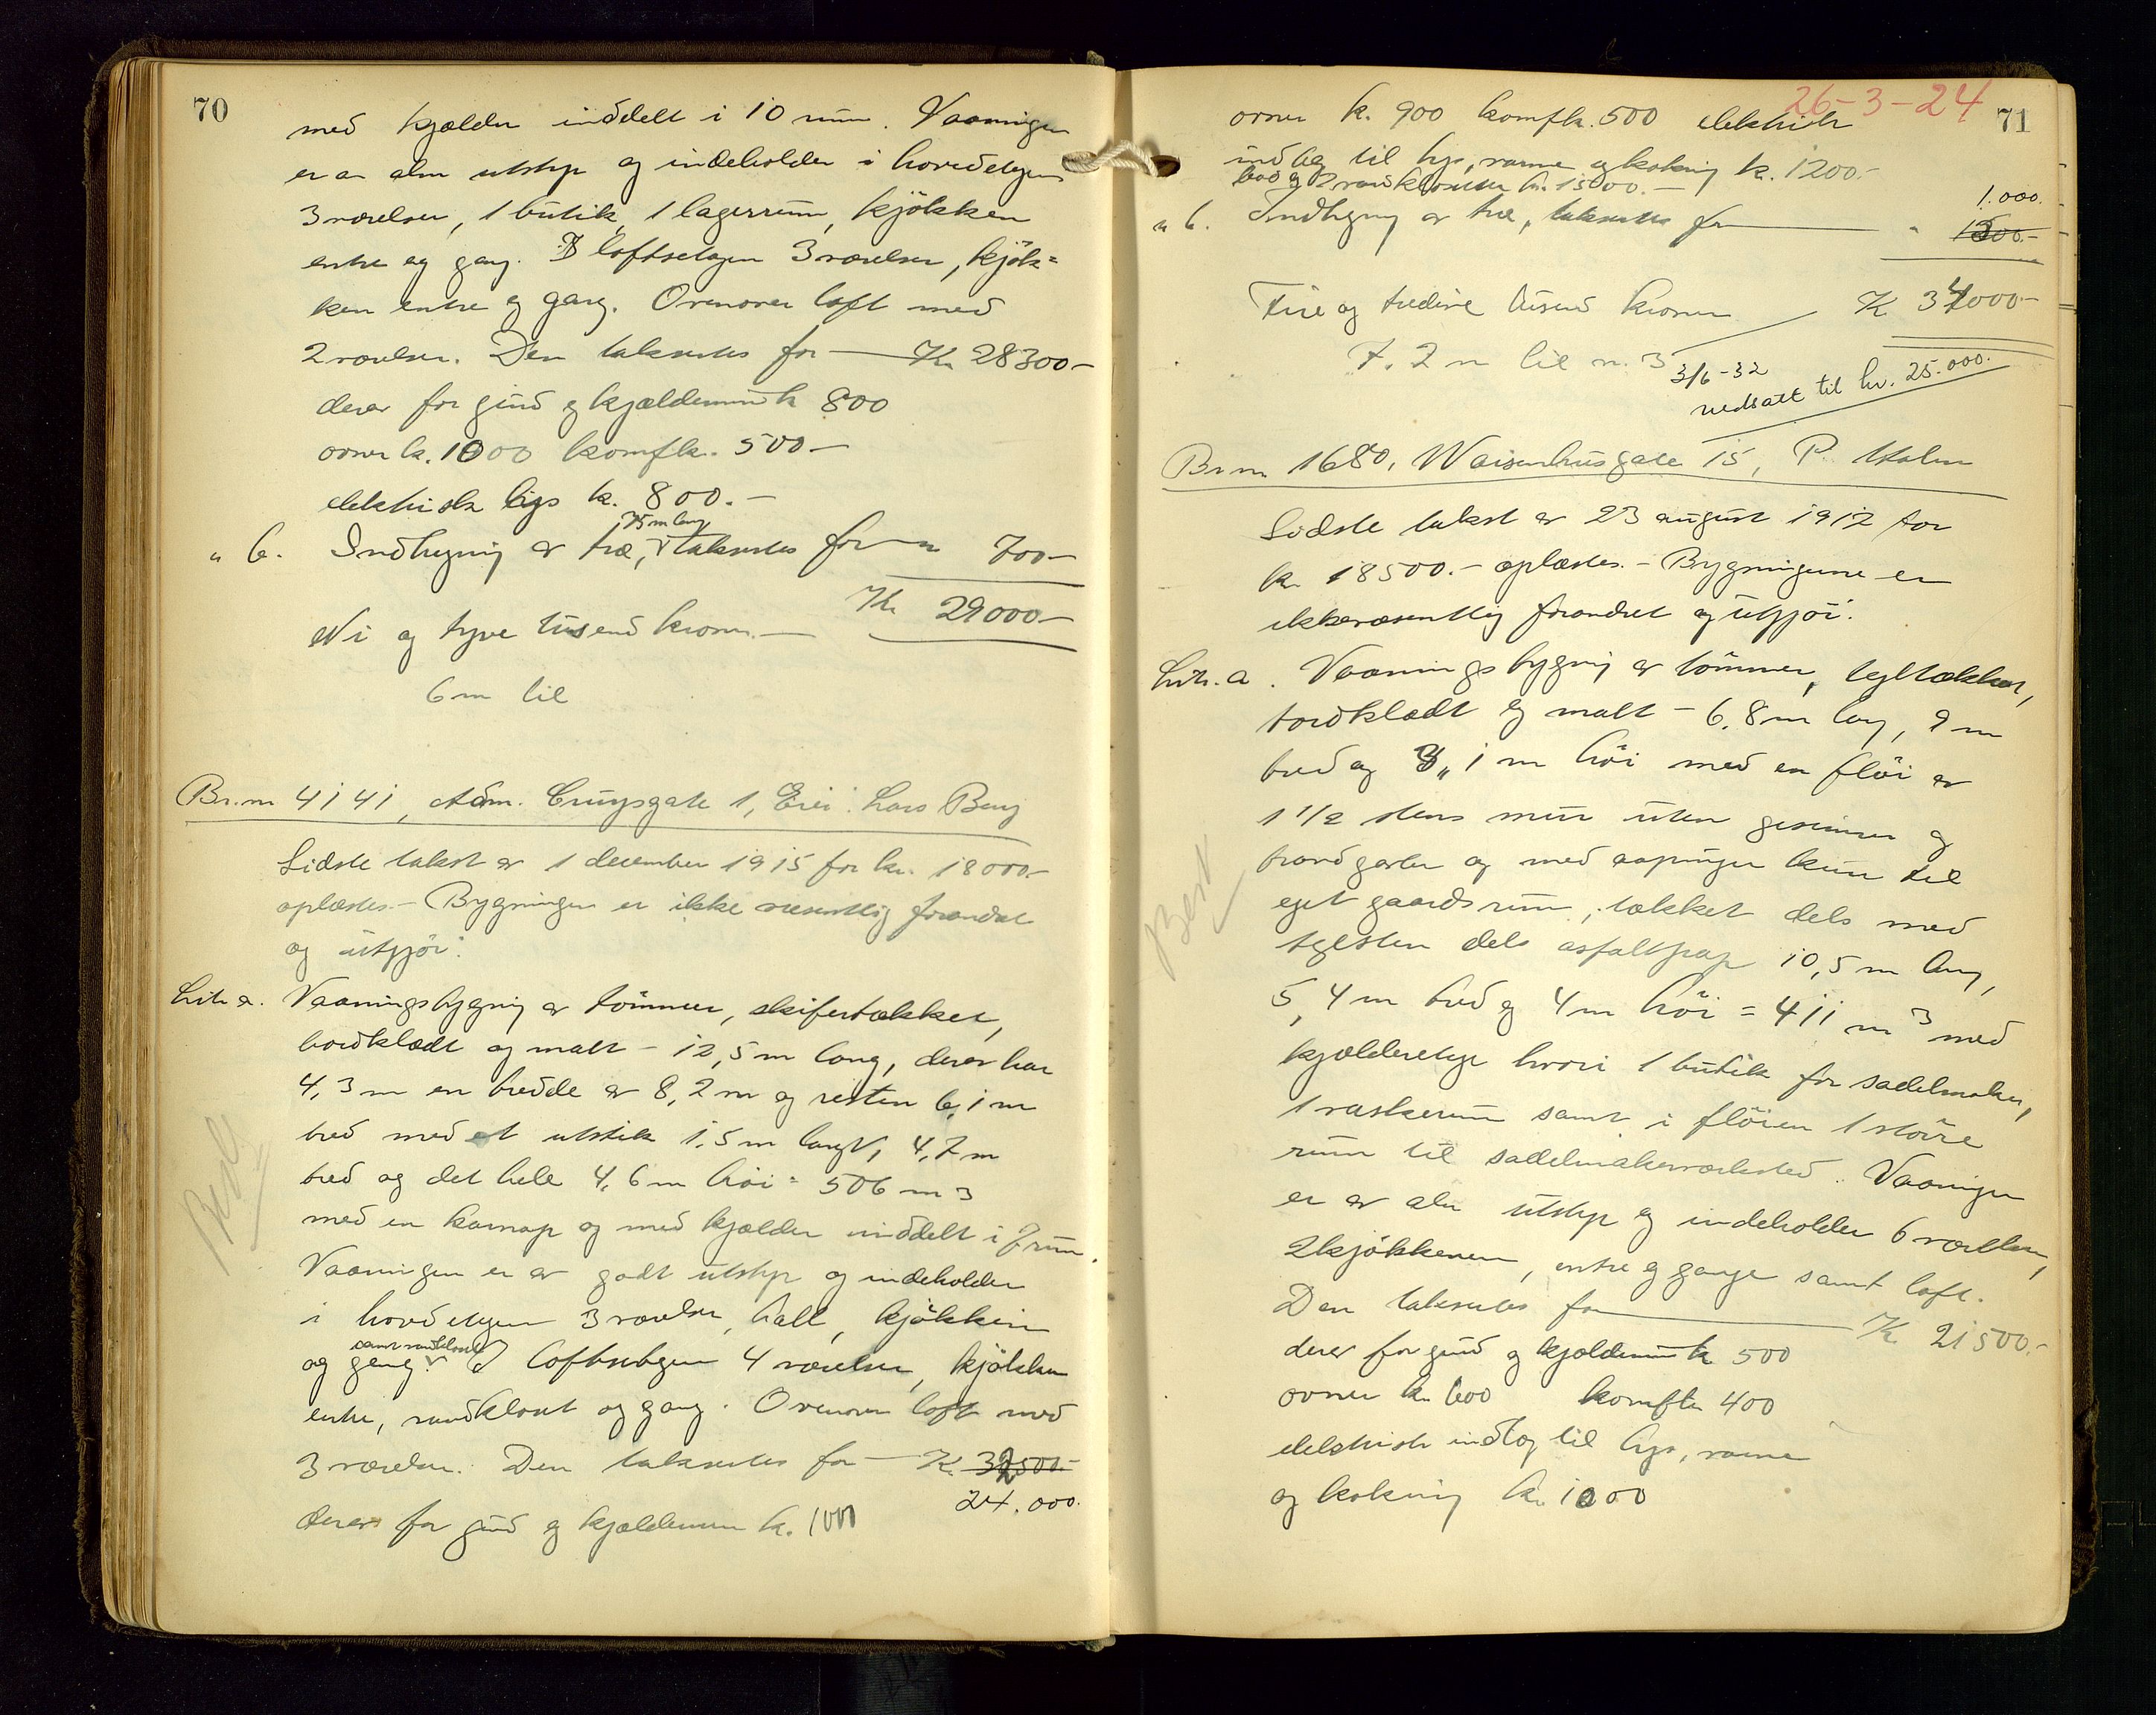 70
med kjælder inddelt i 10 rum. Vaaningen
er av alm utstyr og indeholder i hovedetagen
3 værelser, 1 butik, 1 lagerrum, kjökken
entre og gang. I loftsetagen 3 værelser, kjök-
ken entre og gang. Ovenover loft med
2 værelser. Den takseres for — Kr. 28300-
derav for grund og kjælderrum k 800
ovner k. 1000 komf k. 500-
elektrisk lys k. 800.-
75 m lang
" b. Indhegning av træ, takseres for — " 700-
Kr 29000-
Ni og tyve tusend kroner.-
6 m til
Br.nr 4141, Adm. Cruysgate 1, Eier: Lars Berg
Sidste takst av 1 december 1915 for kr. 18000.-
oplæstes.- Bygningen er ikke væsentlig forandret
og utgjör:
Lit a. Vaaningsbygning av tömmer, skifertækket,
bordklædt og malt - 12,5 m lang, derav har
4,3 m en bredde av 8,2 m og resten 6,1 m
bred med et utstik 1,5 m langt, 4,7 m
bred og det hele 4,6 m höi = 506 m3
med en karnap og med kjælder inddelt i 7 rum.
Vaaningen er av godt utstyr og indeholder
i hovedetagen 3 værelser, hall, kjökken
samt vandkloset
og gang. I loftsetagen 4 værelser, kjökken
entre, vandkloset og gang. Ovenover loft med
3 værelser. Den takseres for — K. 32500.-
24.000.
derav for grund og kjælderrum k. 1000
Bet
26-3-24
71
ovner k. 900 komf k. 500 elektrisk
indlæg til lys, varme og kokning k. 1200.-
bad og 2 vandklosetter kr. 1500.-
1.000.
" b. Indhegning av træ, takseres for — " 1500.-
Fire og tredive tusend kroner K 34000-
7.2 m til n. 3
3/6-32
nedsatt til kr. 25.000.
Br nr 1680, Waisenhusgate 15, P. Holm
Sidste takst av 23 august 1912 for
k. 18500.- oplæstes.- Bygningerne er
ikke væsentlig forandret og utgjör:
Litr. a. Vaaningsbygning av tömmer, tegltækket,
bordklædt og malt - 6,8 m lang, 9 m
bred og 8,1 m höi med en flöi av
1 1/2 stens mur uten gesimser og
brandgavler og med aapninger kun til
eget gaardsrum, tækket dels med
teglsten dels asfaltpap 10,5 m lang,
5,4 m bred og 4 m höi = 411 m3 med
kjælderetage hvori 1 butik for sadelmaker,
1 vaskerum samt i flöien 1 större
rum til sadelmakerverksted. Vaaningen
er av alm utstyr og indeholder 6 værelser,
2 kjökkener, entre og gange samt loft.
Den takseres for — K 21500.-
derav for grund og kjælderrum k 500
ovner k. 600 komf k 400
elektrisk indlæg til lys, varme
og kokning k. 1000